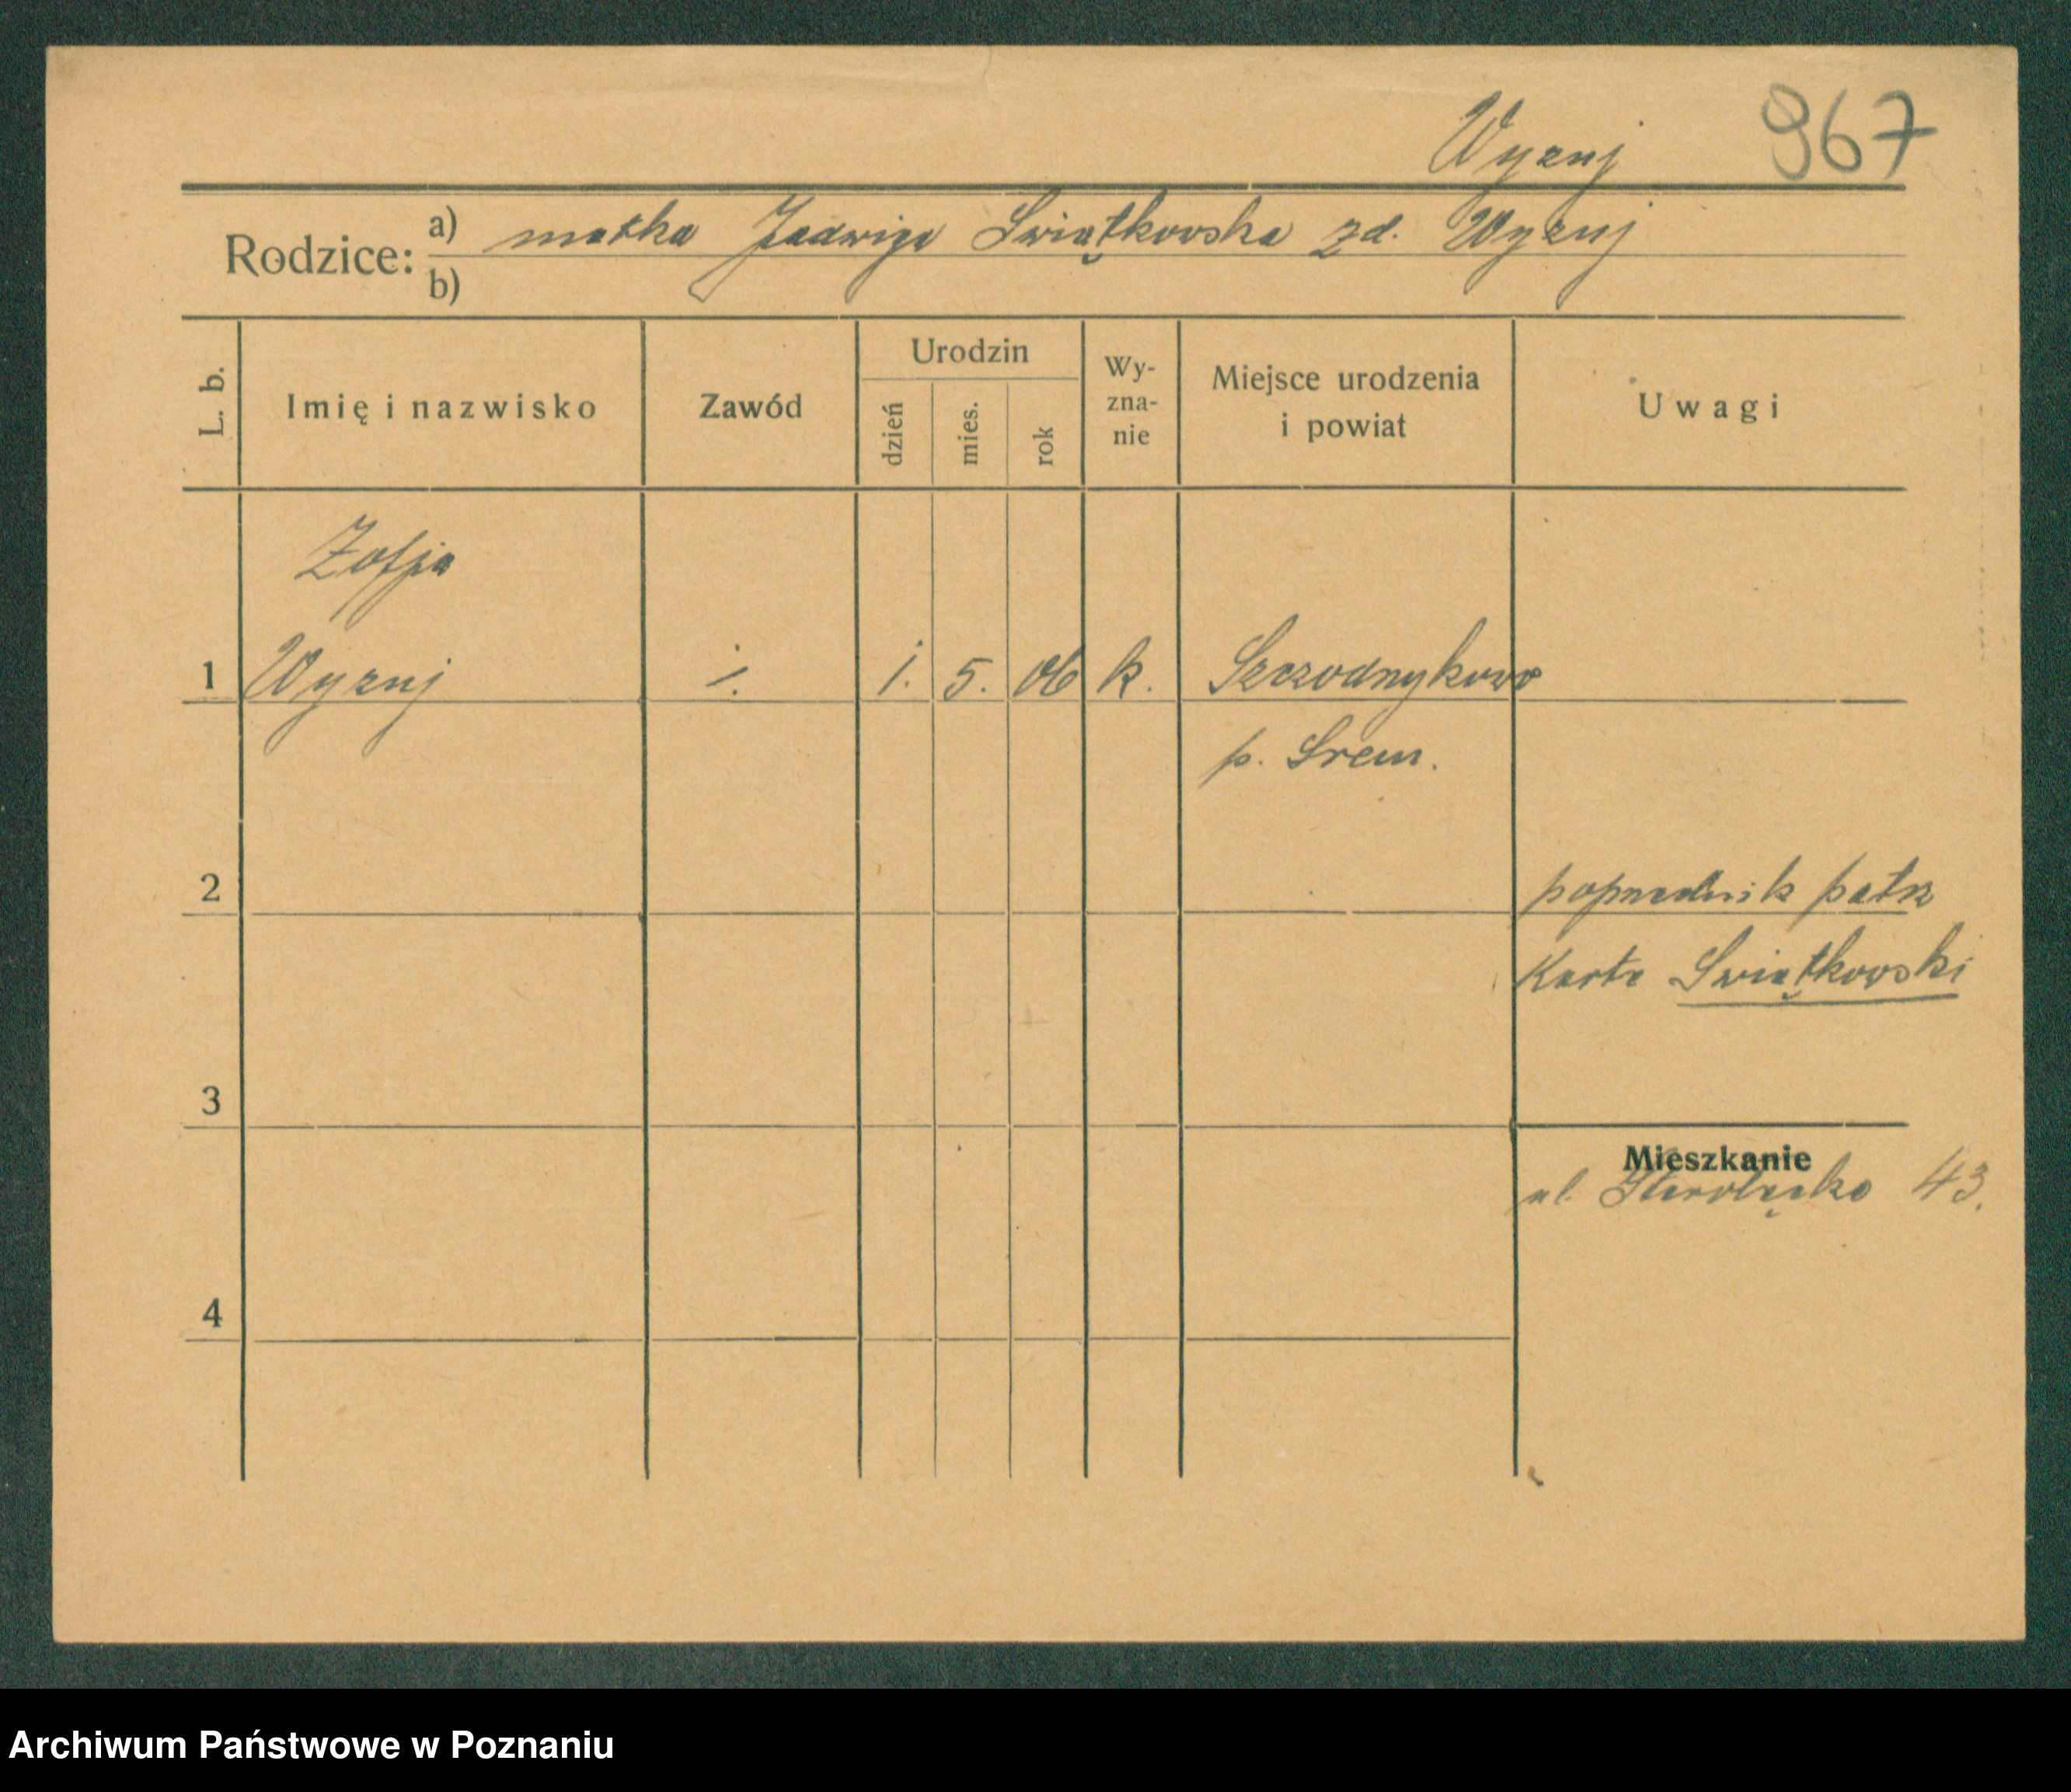 Wyznj 967
Rodzice: a) matka Jadwiga Swiątkowska zd. Wyznj
b)
L. b. Imię i nazwisko Zawód Urodzin dzień mies. rok Wyzna-nie Miejsce urodzenia i powiat Uwagi
Zofja
1 Wyznj i. 1. 5. 06 k. Szczodrzykowo
p. Srem.
2 poprzednik patrz
Karta Swiątkowski
3
Mieszkanie
ul. Starołęcka 43.
4
Archiwum Państwowe w Poznaniu